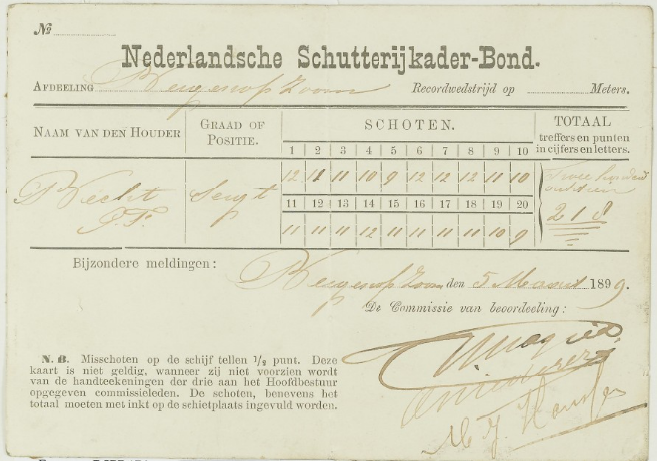 No
Nederlandsche Schutterijkader-Bond.
AFDEELING Bergen op Zoom Recordwedstrijd op Meters.
NAAM VAN DEN HOUDER GRAAD OF POSITIE. SCHOTEN. TOTAAL treffers en punten in cijfers en letters.
1 2 3 4 5 6 7 8 9 10
Vecht Sergt 12 12 11 10 9 12 12 12 11 10 Twee honderd
11 12 13 14 15 16 17 18 19 20
11 11 11 12 11 11 11 11 10 9 218
Bijzondere meldingen:
Bergen op Zoom den 5 Maart 1899.
De Commissie van beoordeeling:
N. B. Misschoten op de schijf tellen 1/2 punt. Deze
kaart is niet geldig, wanneer zij niet voorzien wordt
van de handteekeningen der drie aan het Hoofdbestuur
opgegeven commissieleden. De schoten, benevens het
totaal moeten met inkt op de schietplaats ingevuld worden.